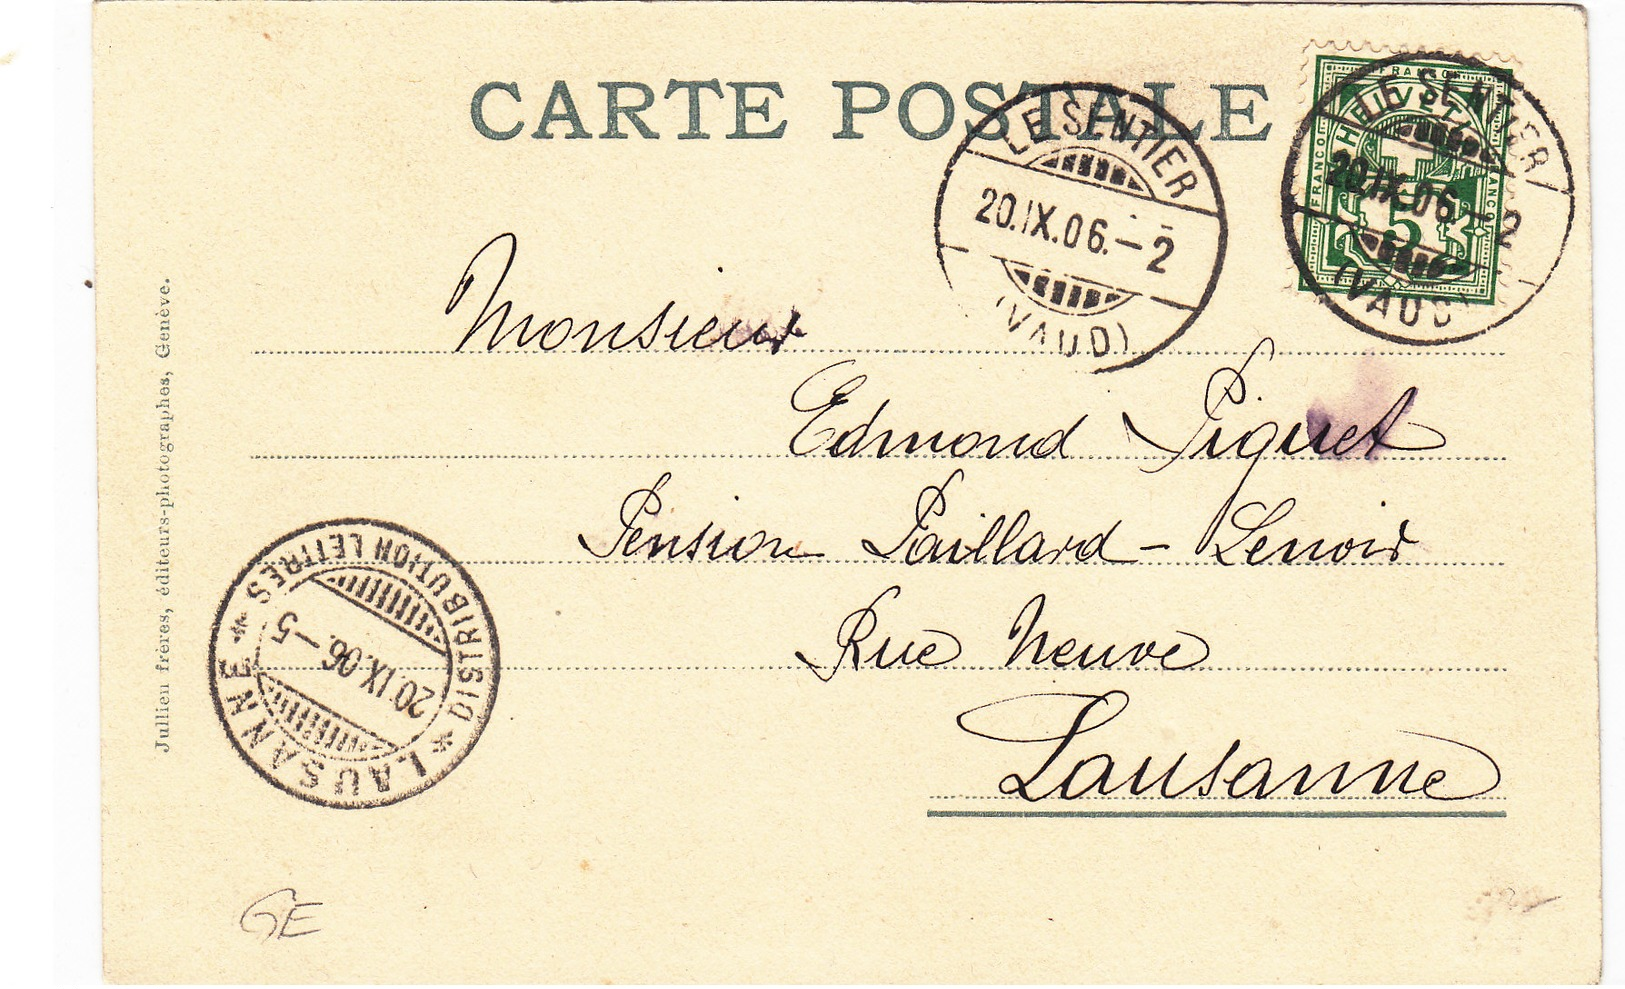 CARTE POSTALE
LE SENTIER
20.IX.06.–2
(VAUD)
FRANCO
HELVETIA
FRANCO
FRANCO
5
LE SENTIER
20.IX.06.–2
(VAUD)
Monsieur
Edmond Piguet
Pension Paillard – Lenoir
Rue Neuve
Lausanne
Jullien frères, éditeurs-photographes, Genève.
* LAUSANNE *
DISTRIBUTION LETTRES
20.IX.06.–5
GE